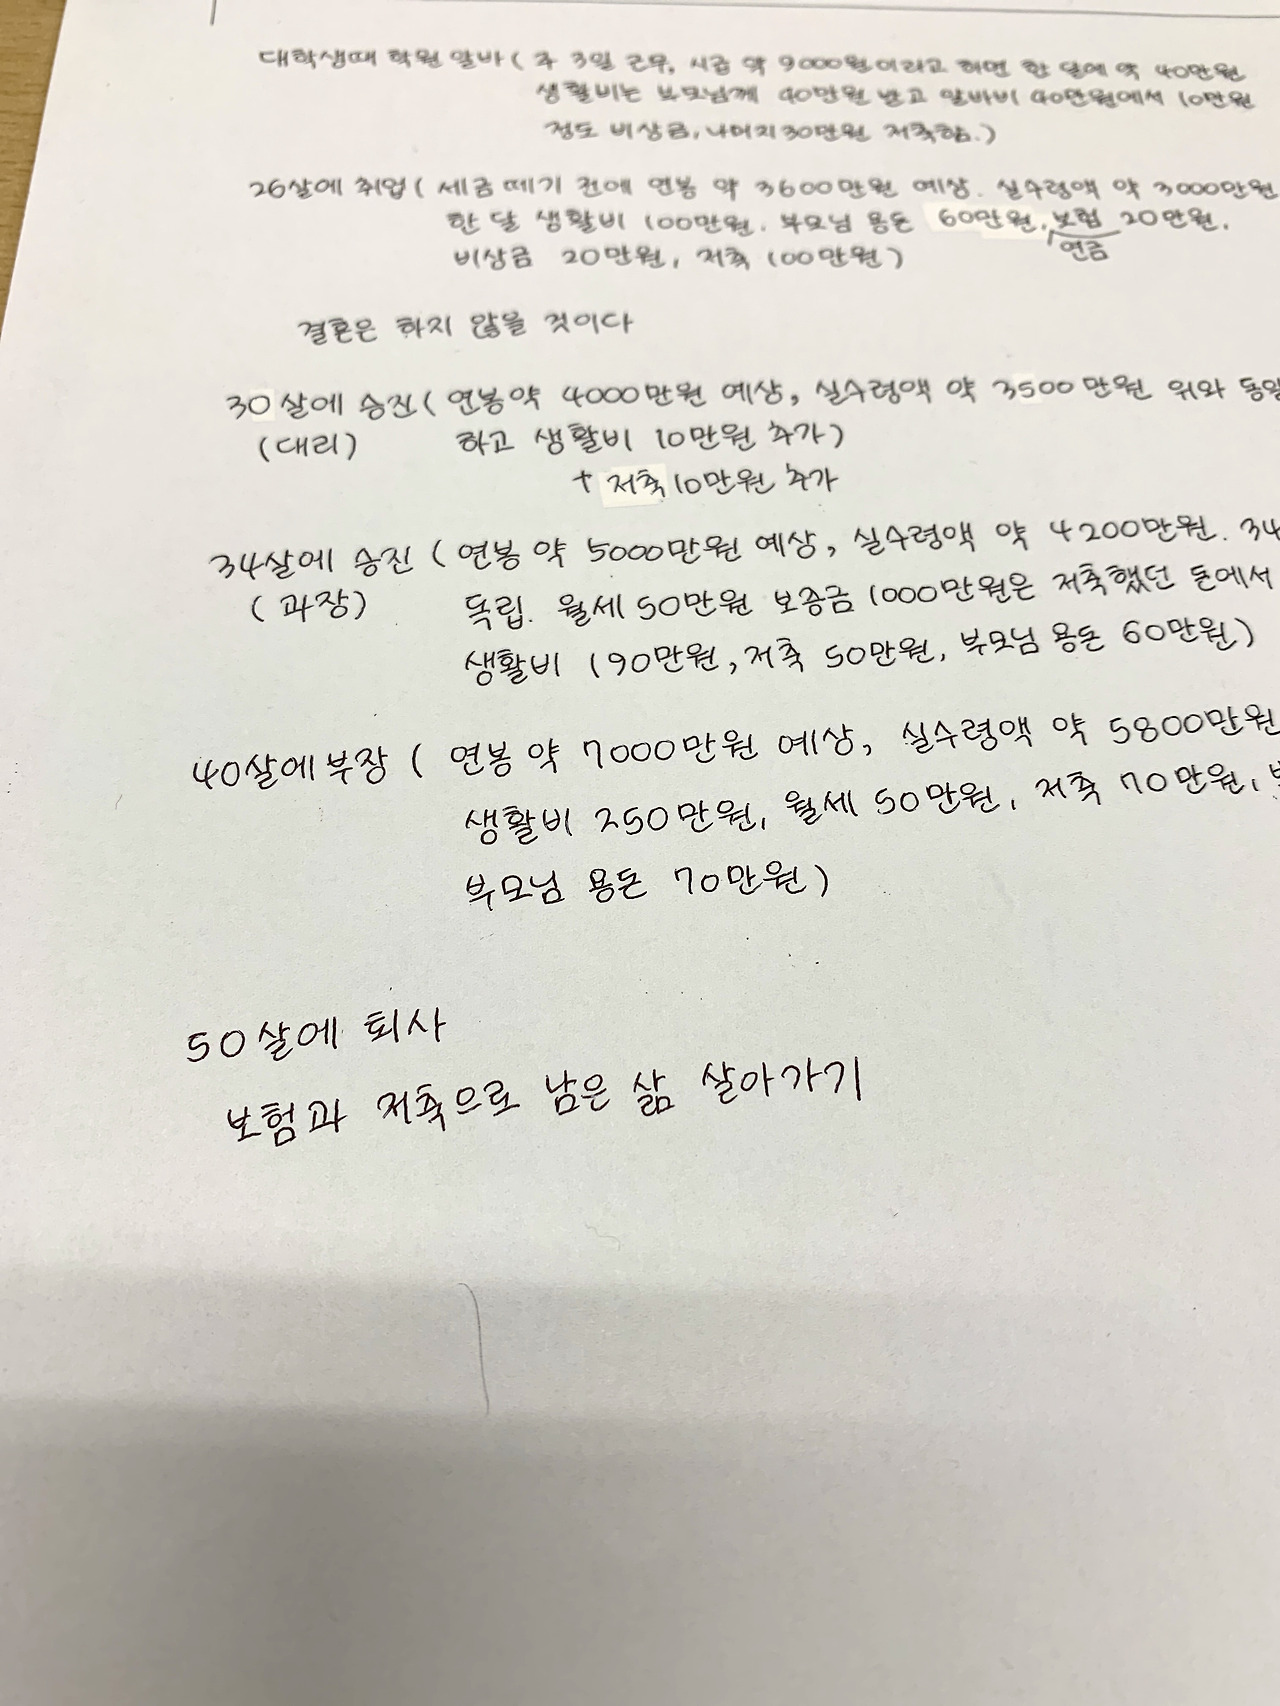 대학생때 학원 알바 ( 주 3일 근무, 시급 약 9000원이라고 하면 한 달에 약 40만원
생활비는 부모님께 40만원 받고 알바비 40만원에서 10만원
정도 비상금, 나머지 30만원 저축함.)
26살에 취업 ( 세금 떼기 전에 연봉 약 3600만원 예상. 실수령액 약 3000만원
한 달 생활비 100만원. 부모님 용돈 60만원, 보험 20만원.
연금
비상금 20만원, 저축 100만원)
결혼은 하지 않을 것이다
30살에 승진 ( 연봉 약 4000만원 예상, 실수령액 약 3500만원 위와 동일
(대리) 하고 생활비 10만원 추가)
+ 저축 10만원 추가
34살에 승진 ( 연봉 약 5000만원 예상, 실수령액 약 4200만원. 34
(과장) 독립. 월세 50만원 보증금 1000만원은 저축했던 돈에서
생활비 190만원, 저축 50만원, 부모님 용돈 60만원)
40살에 부장 ( 연봉 약 7000만원 예상, 실수령액 약 5800만원
생활비 250만원, 월세 50만원, 저축 70만원,
부모님 용돈 70만원)
50살에 퇴사
보험과 저축으로 남은 삶 살아가기